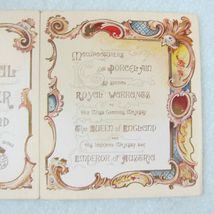 AL
ER
ND
Manufacturers
OF PORCELAIN
BY SPECIAL
ROYAL WARRANTS
TO
HER MOST GRACIOUS MAJESTY
THE QUEEN OF ENGLAND
AND
HIS IMPERIAL MAJESTY THE
EMPEROR OF AUSTRIA